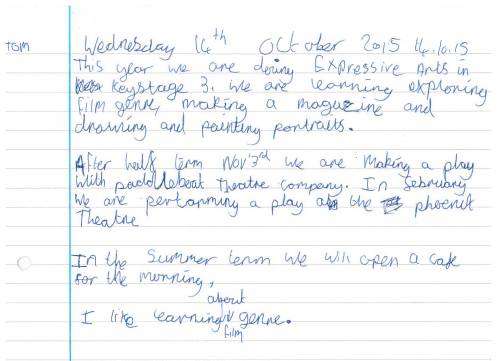 TOM
Wednesday 14th October 2015 14.10.15
This year we are doing Expressive Arts in
Keystage 3. We are learning exploring
film genre, making a magazine and
drawing and painting portraits.
After half term Nov 3rd we are making a play
with paddleboat theatre company. In february
we are performing a play at the phoenix
Theatre
In the Summer term we will open a cafe
for the morning,
about
I like learning genre.
film